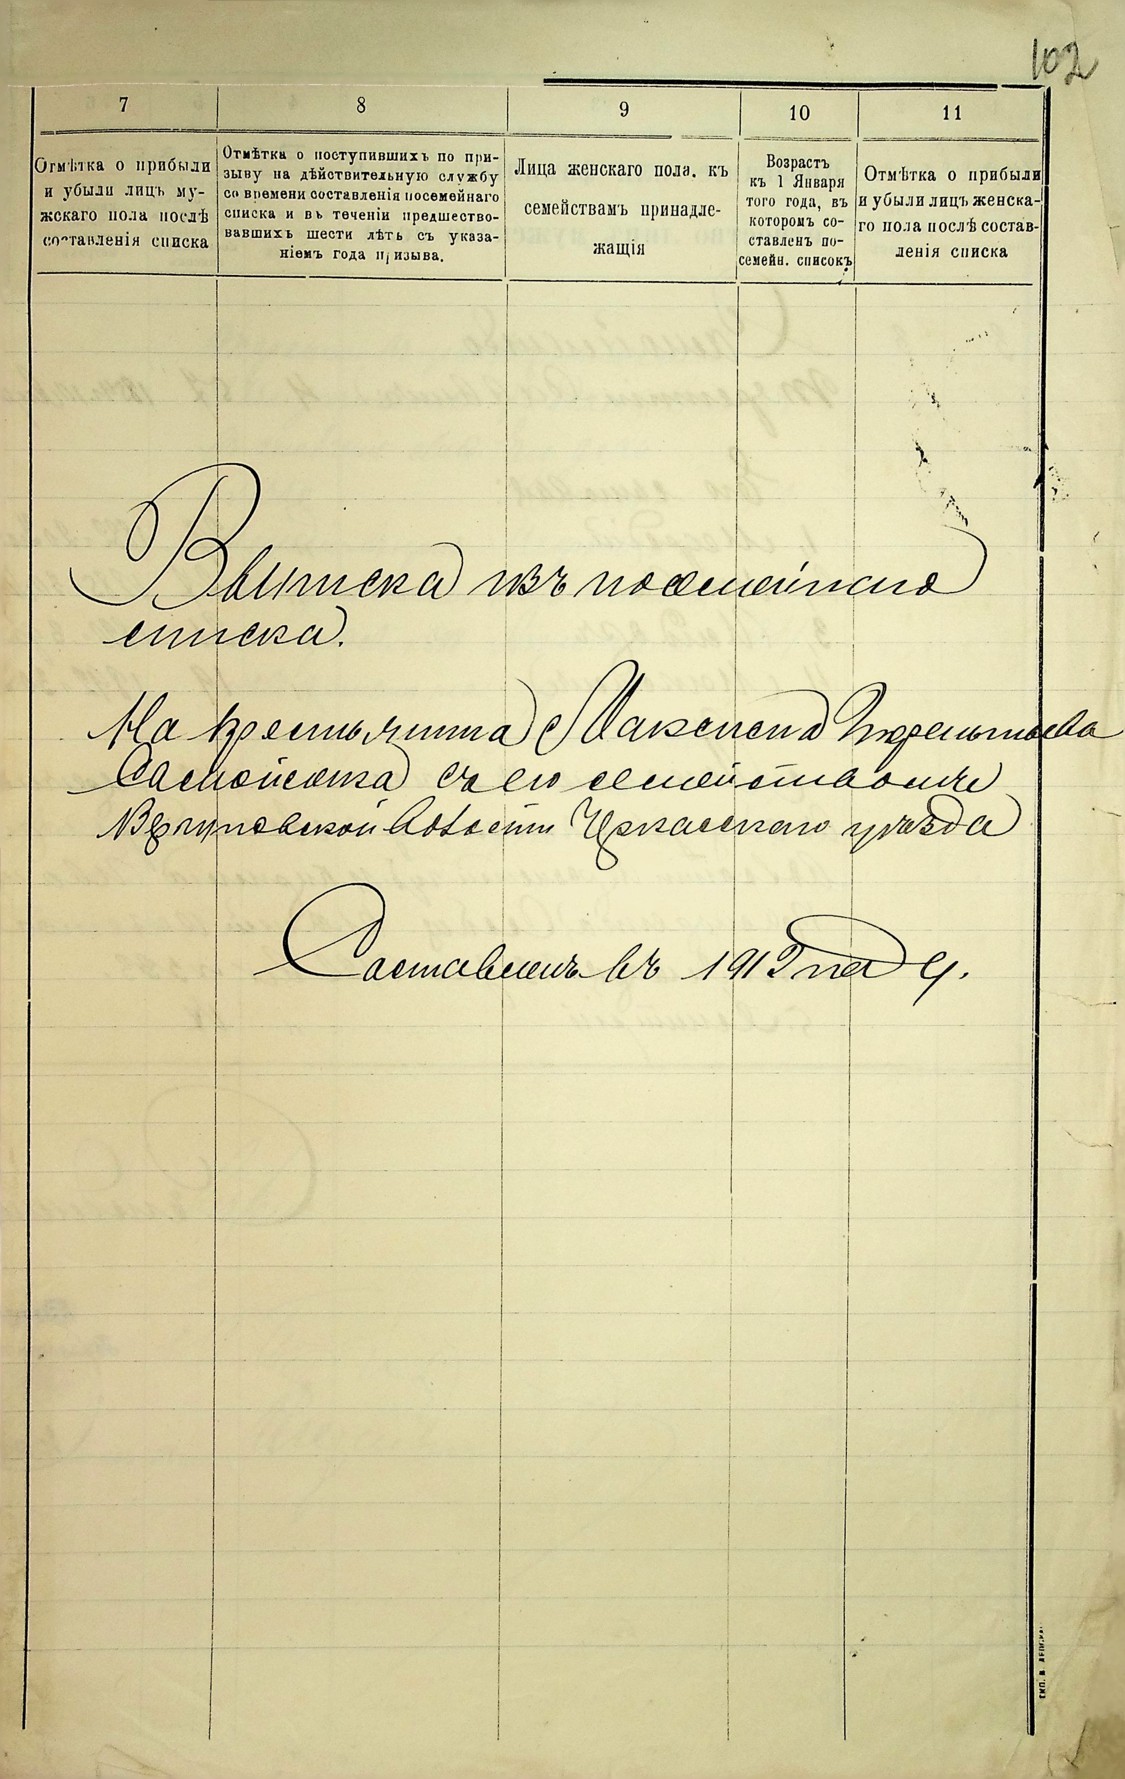 102
7 8 9 10 11
Отмѣтка о прибыли
и убыли лицъ му-
жскаго пола послѣ
составленія списка
Отмѣтка о поступившихъ по при-
зыву на дѣйствительную службу
со времени составленія посемейнаго
списка и въ теченіи предшество-
вавшихъ шести лѣтъ съ указа-
ніемъ года призыва.
Лица женскаго пола. къ
семействамъ принадле-
жащія
Возрастъ
къ 1 Января
того года, въ
которомъ со-
ставленъ по-
семейн. списокъ
Отмѣтка о прибыли
и убыли лицъ женска-
го пола послѣ состав-
ленія списка
Выписка изъ посемейнаго
списка.
На крестьянина
съ его семействомъ
волости Черкасскаго уѣзда
Составленъ въ 1912 году.